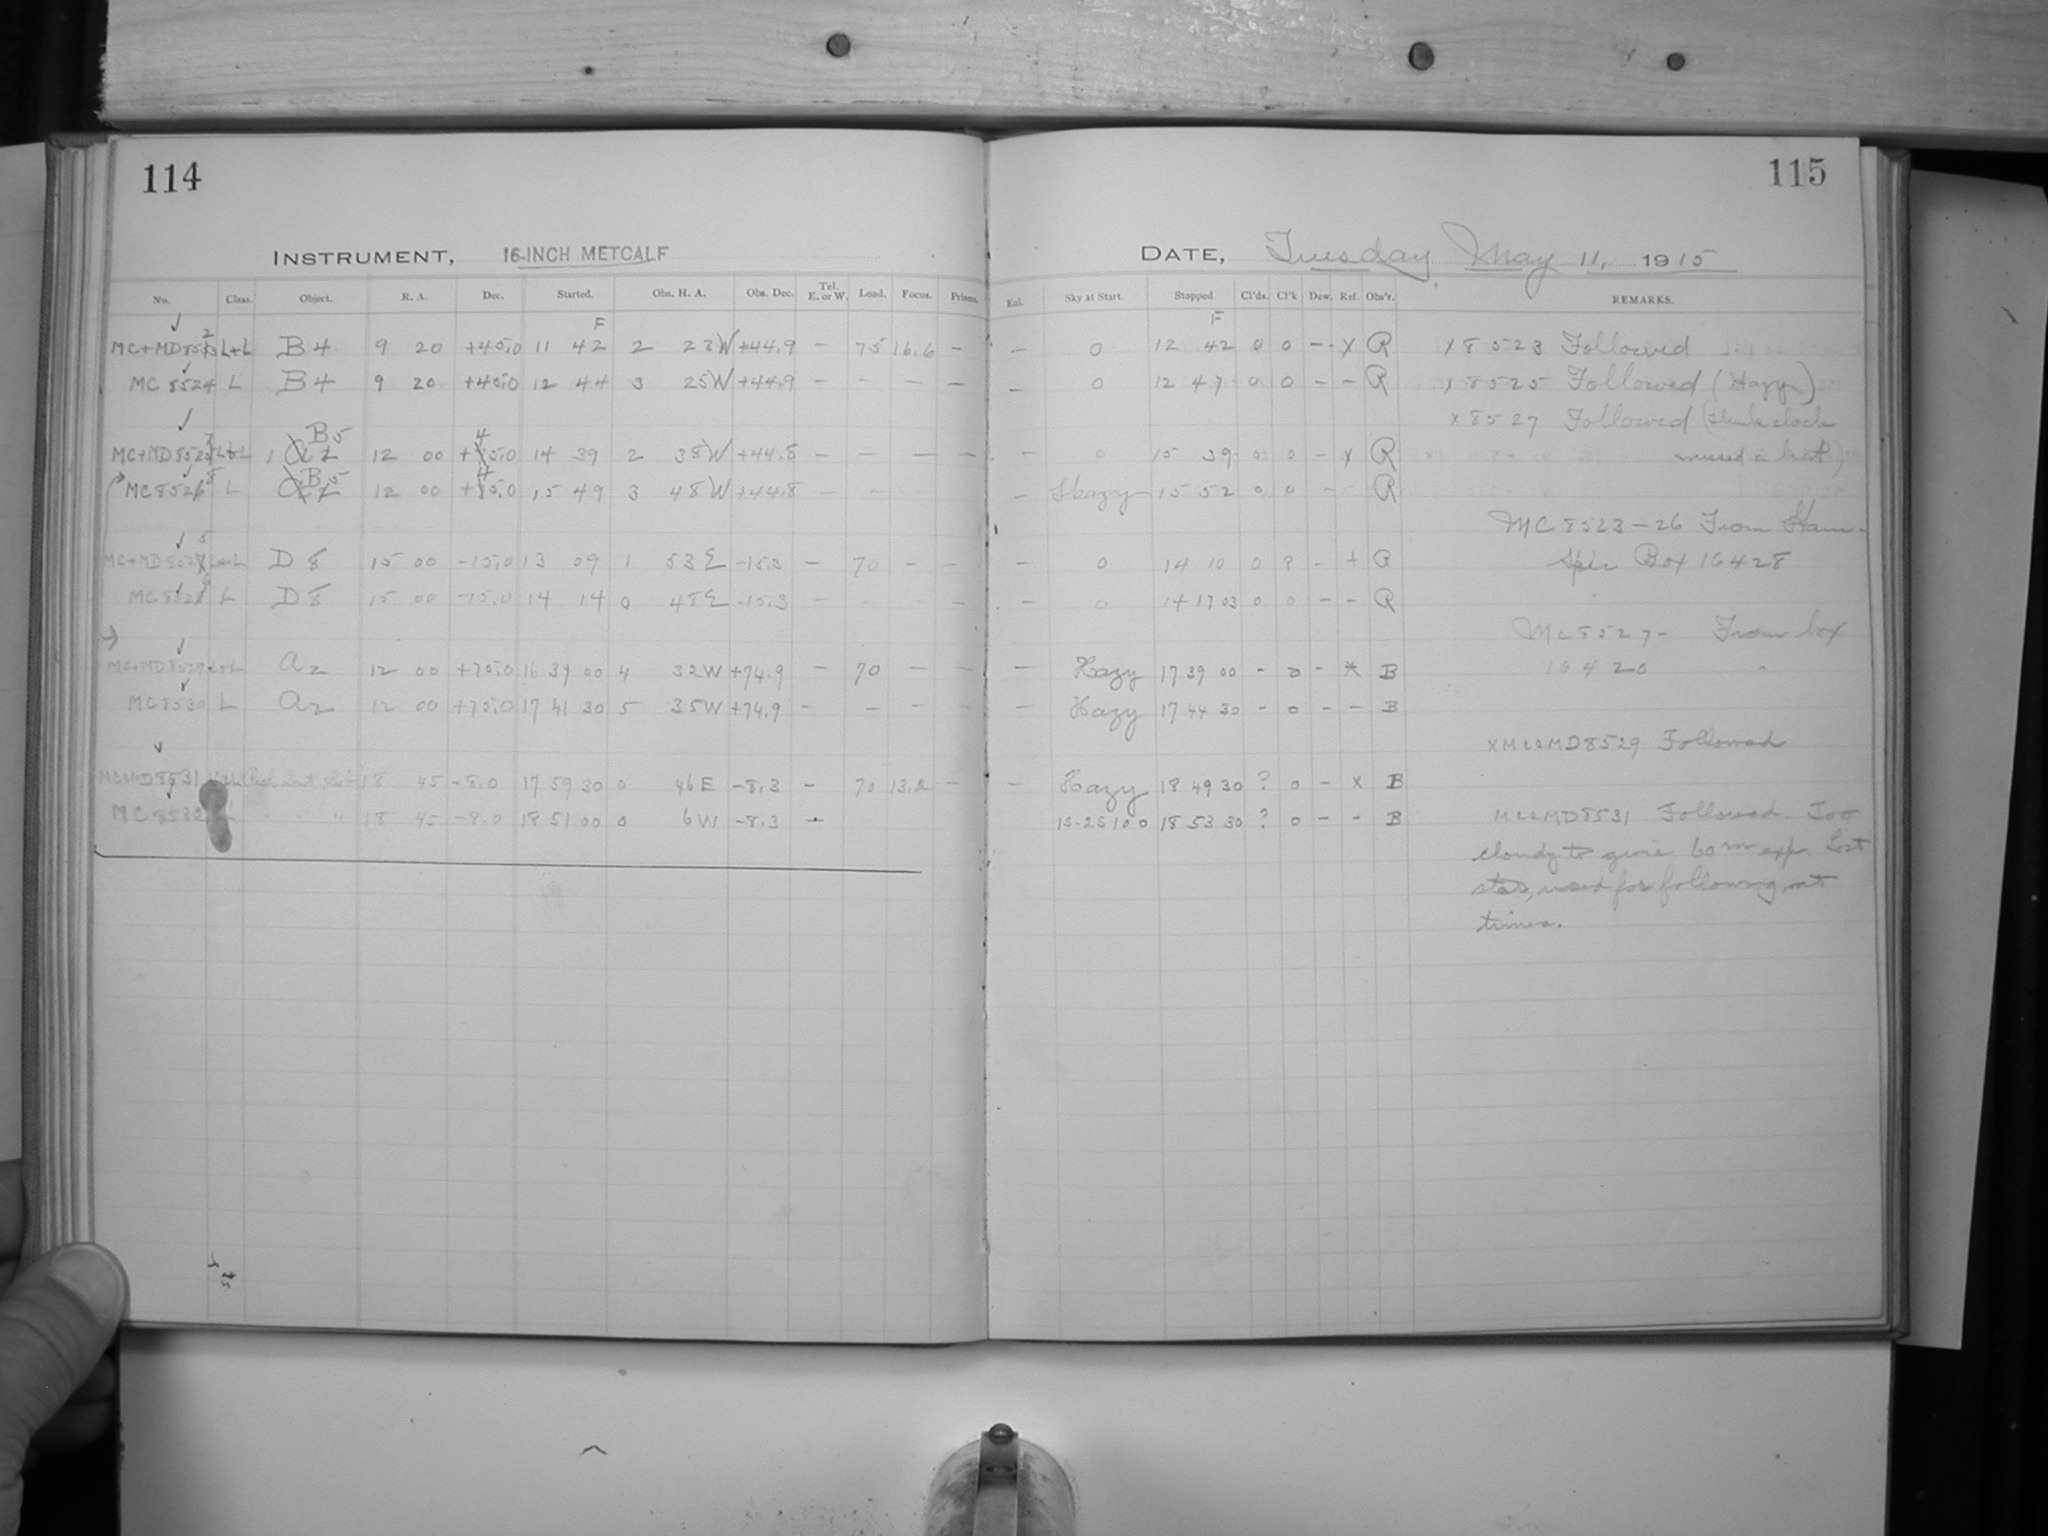 114
115
INSTRUMENT, 16-INCH METCALF
DATE, Tuesday May 11, 1915
No. Class. Object. R. A. Dec. Started. Obs. H. A. Obs. Dec. Tel. E. or W. Load. Focus. Prisms. Eal. Sky at Start. Stopped. Cl'ds. Cl'k Dew. Ref. Obs'r. REMARKS.
F F
MC+MD 8523 L+L B4 9 20 +45.0 11 42 2 23W +44.9 – 75 16.6 – – 0 12 42 0 0 – x R x 8523 Followed
MC 8524 L B4 9 20 +45.0 12 44 3 25W +44.9 – – – – – 0 12 47 0 0 – – R x 8525 Followed (Hazy)
x 8527 Followed (think clock
B5 4
MC+MD 8527 L+L 12 00 +45.0 14 39 2 38W +44.8 – – – – – 0 15 39 0 0 – x R missed a beat)
B5 4
MC 8528 L 12 00 +45.0 15 49 3 48W +44.8 – – – – Hazy 15 52 0 0 – R
MC 8523–26 From
MC+MD 8525 L+L D8 15 00 –15.0 13 09 1 53E –15.3 – 70 – – – 0 14 10 0 ? – + R Box 16428
MC 8526 L D8 15 00 –15.0 14 14 0 48E –15.3 – – – – 0 14 17 03 0 0 – – R
MC 8527– From box
MC+MD 8529 L+L A2 12 00 +75.0 16 39 00 4 32W +74.9 – 70 – – – Hazy 17 39 00 – 0 – * B 16420
MC 8530 L A2 12 00 +75.0 17 41 30 5 35W +74.9 – – – – – Hazy 17 44 30 – 0 – – B
x MC&MD 8529 Followed
MC&MD 8531 18 45 –8.0 17 59 30 0 46E –8.3 – 70 13.2 – – Hazy 18 49 30 ? 0 – x B
MC 8532 L " " " 18 45 –8.0 18 51 00 0 6W –8.3 – 1S-2S 100 18 53 30 ? 0 – – B MC&MD 8531 Followed. Too
cloudy to give 60m exp. Lost
star, used for following, at
times.